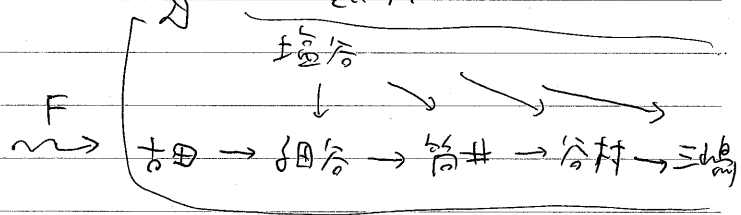 塩谷
↓ ↘ ↘ ↘
F
吉田 → 細谷 → 筒井 → 谷村 → 三嶋